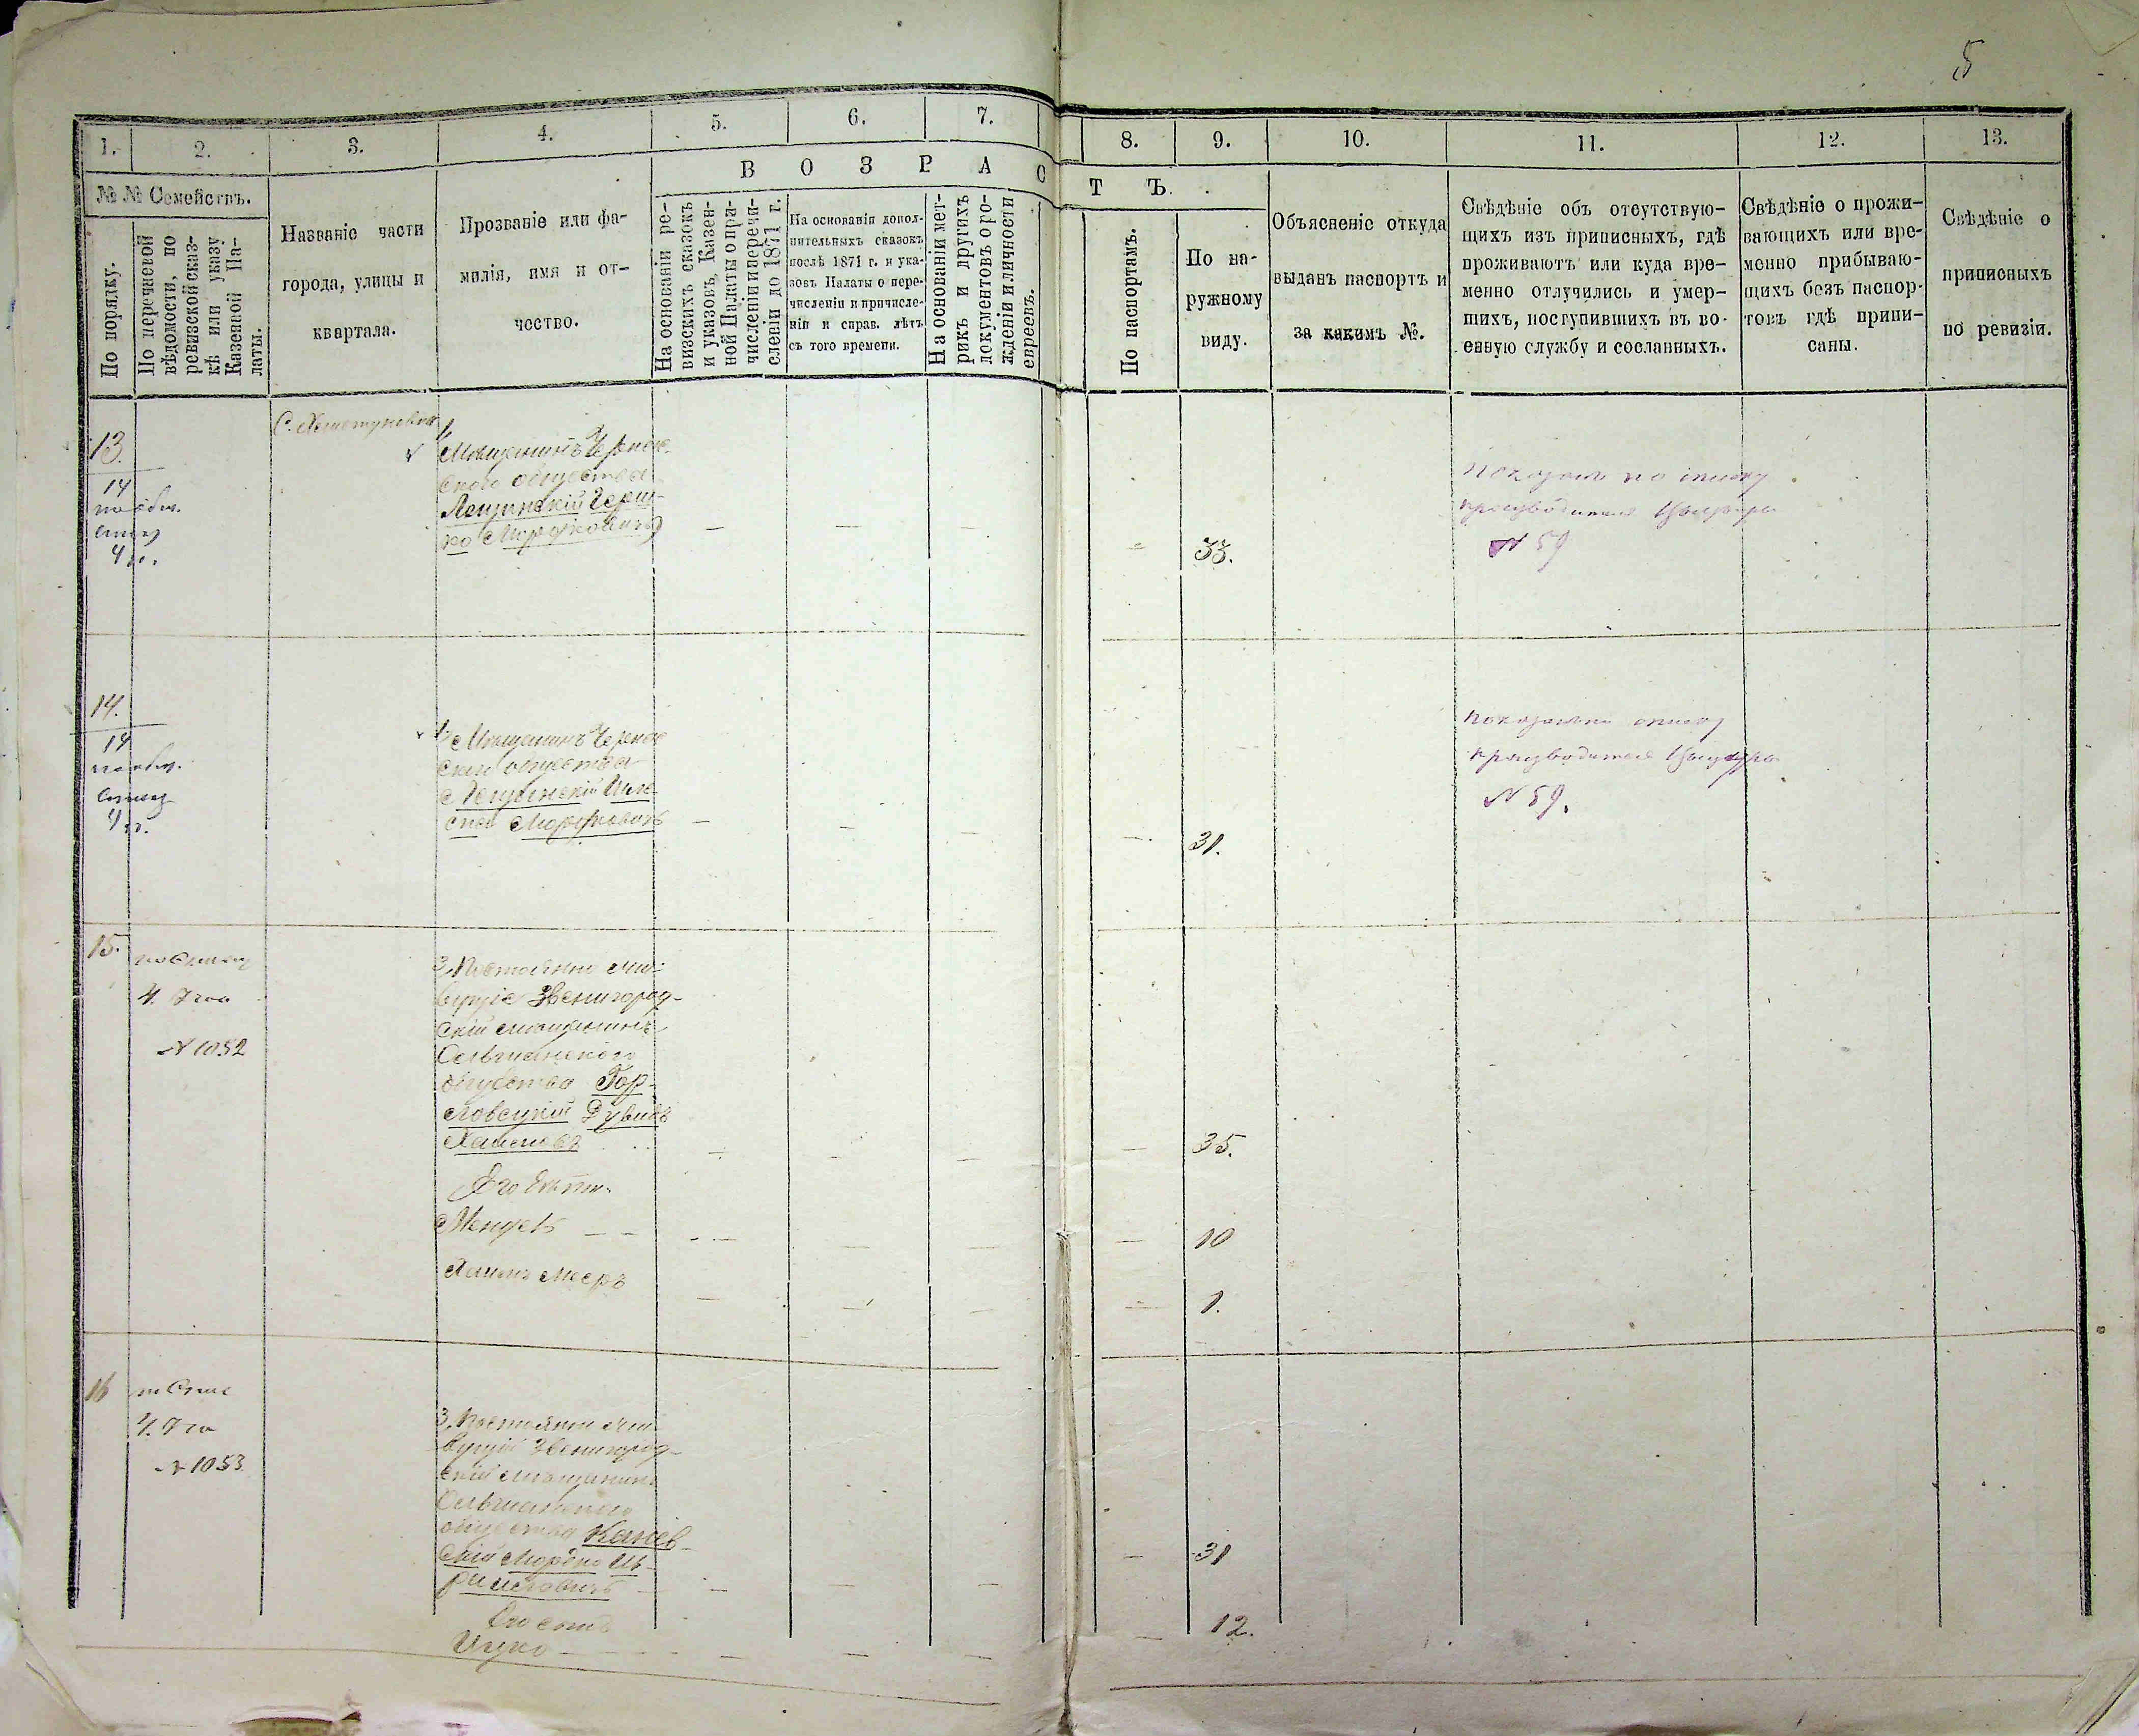 5
1.
2.
3.
4.
5.
6.
7.
8.
9.
10.
11.
12.
13.
№ № Семействъ.
По порядку.
По перечневой
вѣдомости, по
ревизской сказ-
кѣ или указу
Казенной Па-
латы.
Названіе части
города, улицы и
квартала.
Прозваніе или фа-
милія, имя и от-
чество.
В О З Р А С Т Ъ.
На основаніи ре-
визскихъ сказокъ
и указовъ, Казен-
ной Палаты о при-
численіи и перечи-
сленіи до 1871 г.
На основаніи допол-
нительныхъ сказокъ
послѣ 1871 г. и ука-
зовъ Палаты о пере-
численіи и причисле-
ніи и справ. лѣтъ
съ того времени.
На основаніи мет-
рикъ и другихъ
документовъ о ро-
жденіи и личности
евреевъ.
По паспортамъ.
По на-
ружному
виду.
Объясненіе откуда
выданъ паспортъ и
за какимъ №.
Свѣдѣніе объ отсутствую-
щихъ изъ приписныхъ, гдѣ
проживаютъ или куда вре-
менно отлучились и умер-
шихъ, поступившихъ въ во-
енную службу и сосланныхъ.
Свѣдѣніе о прожи-
вающихъ или вре-
менно прибываю-
щихъ безъ паспор-
товъ гдѣ припи-
саны.
Свѣдѣніе о
приписныхъ
по ревизіи.
13.
14
4
Мѣщанинъ
скаго общества
Лещинскій Герш-
ко Мордковичъ
33.
производителя
№ 59
14.
14
4
Мѣщанинъ
скаго общества
Лещинскій
Мордковичъ
31.
производителя
№ 59.
15.
по списку
4.
№ 1052
3, Постоянно жи-
вущіе Звенигород-
скій мѣщанинъ
Ольшанскаго
общества Гор-
ловецкій Дувидъ
35.
Его дѣти
10
Хаимъ Мееръ
1.
16
4.
№ 1053
3, Постоянно жи-
вущій Звенигород-
скій мѣщанинъ
Ольшанскаго
общества Канев-
скій Мордко Из-
раилевичъ
31
Его сынъ
Ицко
12.